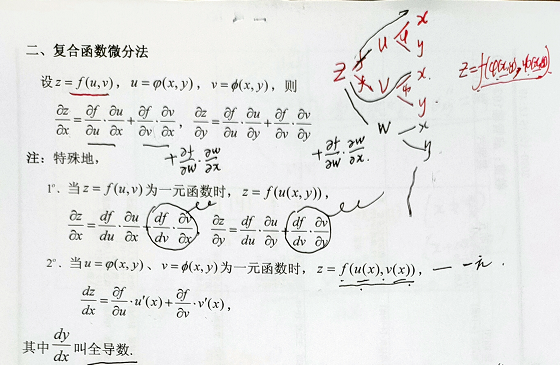 二、复合函数微分法
设 z = f(u,v), u = φ(x,y), v = ϕ(x,y), 则
∂z/∂x = ∂f/∂u · ∂u/∂x + ∂f/∂v · ∂v/∂x, ∂z/∂y = ∂f/∂u · ∂u/∂y + ∂f/∂v · ∂v/∂y
+ ∂f/∂w · ∂w/∂x + ∂f/∂w · ∂w/∂x.
注: 特殊地,
1°. 当 z = f(u,v) 为一元函数时, z = f(u(x,y)),
∂z/∂x = df/du · ∂u/∂x + df/dv · ∂v/∂x ∂z/∂y = df/du · ∂u/∂y + df/dv · ∂v/∂y
2°. 当 u = φ(x,y)、v = ϕ(x,y) 为一元函数时, z = f(u(x),v(x)), — 一元.
dz/dx = ∂f/∂u · u'(x) + ∂f/∂v · v'(x),
其中 dy/dx 叫全导数.
x
u
y
z f
v x
y
w x
y